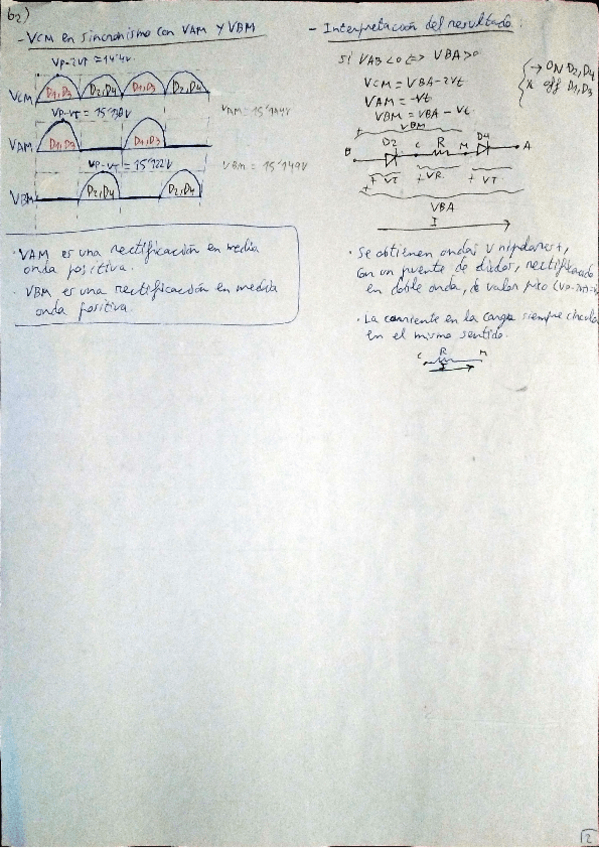 b2)
- VCM en sincronismo con VAM y VBM
VP-2VT = 14'4V
VCM D1,D3 D2,D4 D1,D3 D2,D4
VAM = 15'141V
VAM D1,D3
VBM = 15'149V
VBM D2,D4 D2,D4
· VAM es una rectificación en media
onda positiva.
· VBM es una rectificación en media
onda positiva.
- Interpretación del resultado:
Si VAB<0 <=> VBA>0
→ ON D2,D4
off D1,D3
VCM = VBA-2Vt
VAM = -Vt
VBM = VBA - Vt
VBM
B D2 C R M D4 A
+ VT + VR + VT
VBA
I
· Se obtienen ondas Unipolares,
con un puente de diodos, rectificado
en doble onda, de valor pico
· La corriente en la carga siempre circula
en el mismo sentido.
C R M
I
2